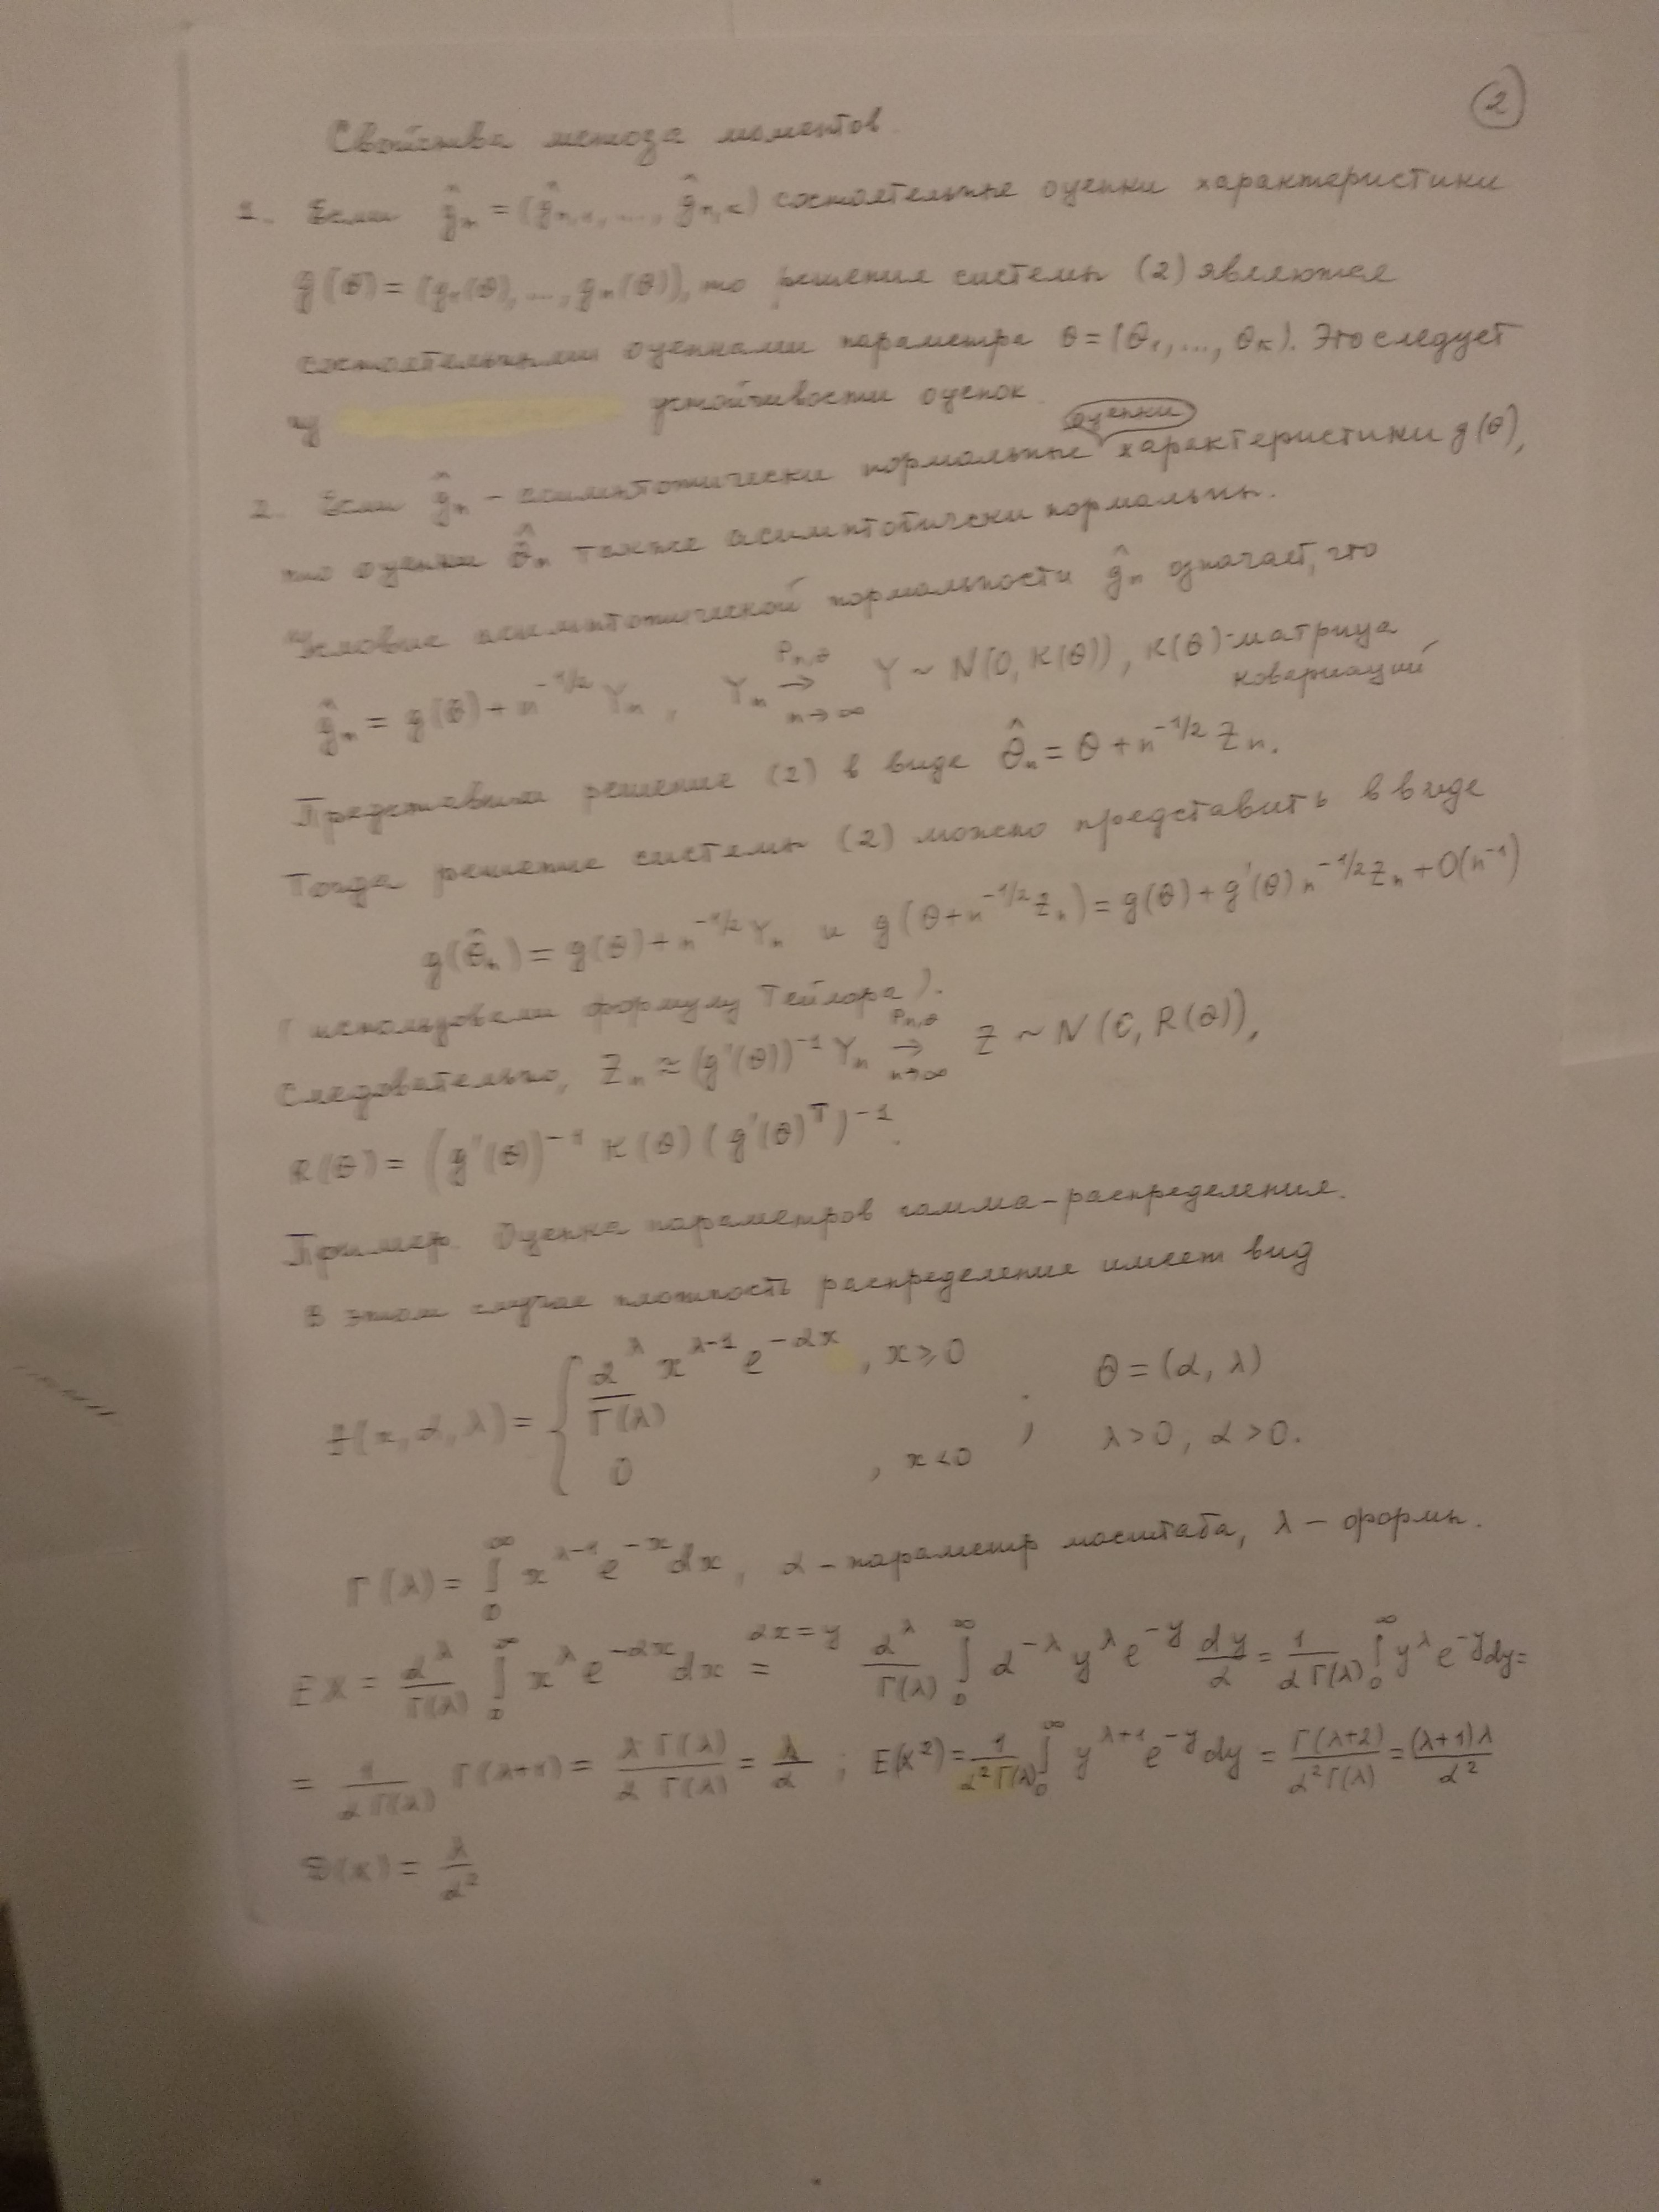 2
Свойства метода моментов.
1. Если ĝₙ = (ĝₙ,₁, ..., ĝₙ,ₖ) состоятельные оценки характеристики
g(θ) = (g₁(θ), ..., gₙ(θ)), то решения системы (2) являются
состоятельными оценками параметра θ = (θ₁, ..., θₖ). Это следует
из устойчивости оценок.
оценки
2. Если ĝₙ – асимптотически нормальные характеристики g(θ),
то оценки θ̂ₙ также асимптотически нормальны.
Условие асимптотической нормальности ĝₙ означает, что
ĝₙ = g(θ) + n^{-1/2} Yₙ, Yₙ →^{Pₙ,θ}_{n→∞} Y ~ N(0, K(θ)), K(θ)-матрица
ковариаций
Представим решение (2) в виде θ̂ₙ = θ + n^{-1/2} Zₙ.
Тогда решение системы (2) можно представить в виде
g(θ̂ₙ) = g(θ) + n^{-1/2} Yₙ и g(θ + n^{-1/2} Zₙ) = g(θ) + g'(θ) n^{-1/2} Zₙ + O(n^{-1})
(использовали формулу Тейлора).
Следовательно, Zₙ ≈ (g'(θ))^{-1} Yₙ →^{Pₙ,θ}_{n→∞} Z ~ N(0, R(θ)),
R(θ) = (g'(θ))^{-1} K(θ) (g'(θ)^T)^{-1}.
Пример. Оценка параметров гамма-распределения.
В этом случае плотность распределения имеет вид
f(x, α, λ) = { α^λ/Γ(λ) x^{λ-1} e^{-αx}, x ⩾ 0 ; θ = (α, λ)
0, x < 0 λ > 0, α > 0.
Γ(λ) = ∫₀^∞ x^{λ-1} e^{-x} dx, α – параметр масштаба, λ – формы.
EX = α^λ/Γ(λ) ∫₀^∞ x^λ e^{-αx} dx =^{αx=y} α^λ/Γ(λ) ∫₀^∞ α^{-λ} y^λ e^{-y} dy/α = 1/(αΓ(λ)) ∫₀^∞ y^λ e^{-y} dy =
= 1/(αΓ(λ)) Γ(λ+1) = λΓ(λ)/(αΓ(λ)) = λ/α ; E(X²) = 1/(α²Γ(λ)) ∫₀^∞ y^{λ+1} e^{-y} dy = Γ(λ+2)/(α²Γ(λ)) = (λ+1)λ/α²
D(X) = λ/α²